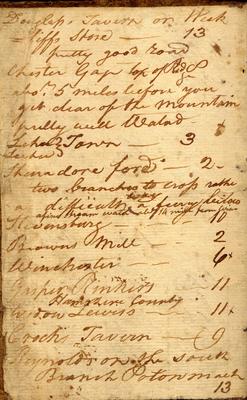 Douglass's Tavern or Week
liffs Store — 13
pretty good road
Chester Gap top of Ridge
abot. 5 miles before you
get clear of the Mountain
pretty well
Town — 3
Shanadore ford — 2
two branches to cross rathe
a difficult
Stevensburg
Browns Mill — 2
Winchester — 6
11
Hampshire County
Widow Lewiss — 11
Crocks Tavern — 9
Reynolds on the south
Branch Potomack
13